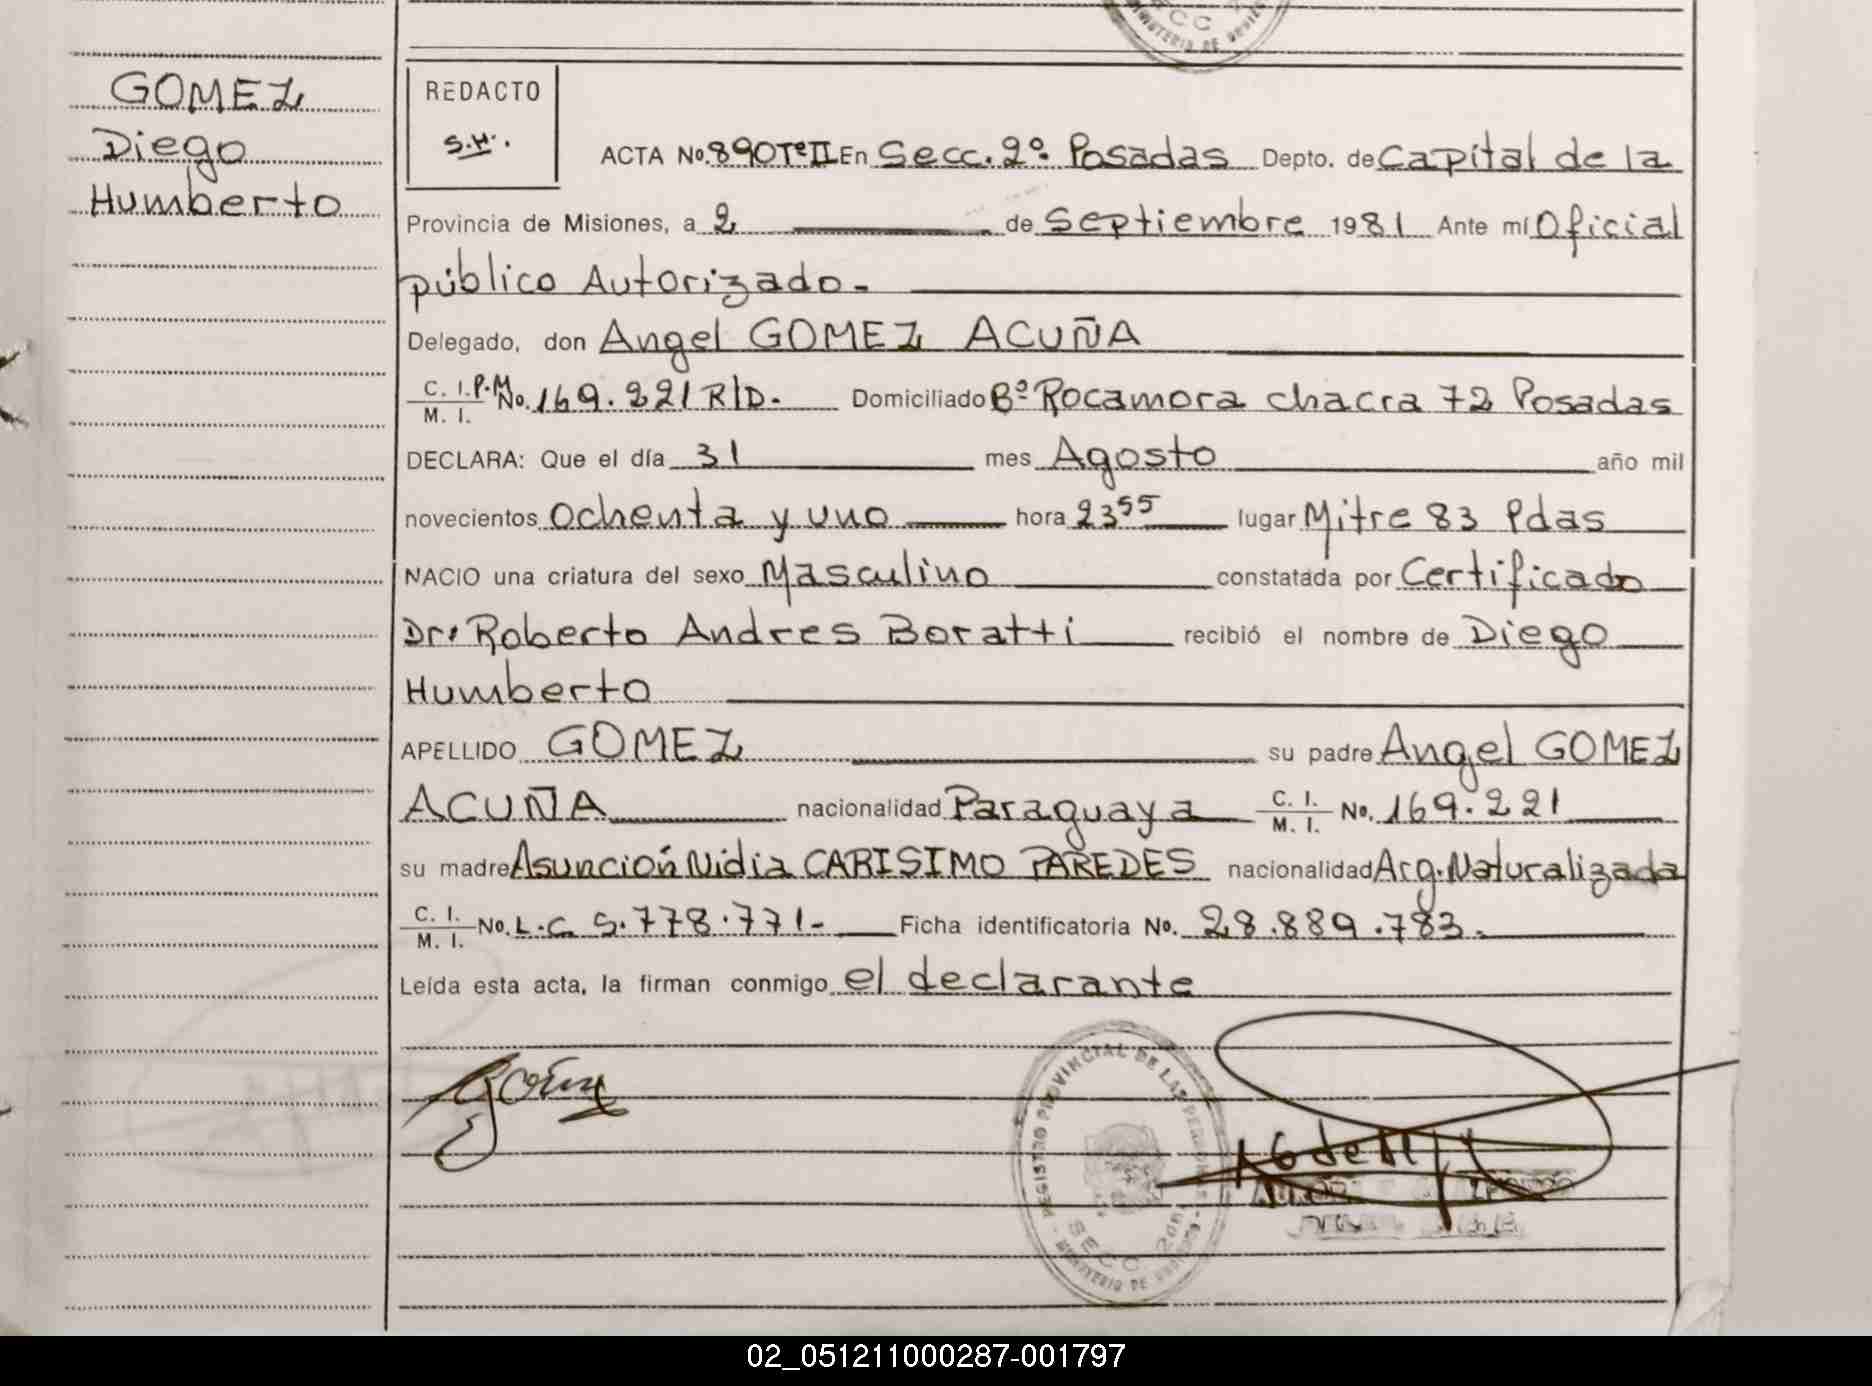 GOMEZ
Diego
Humberto
REDACTO
S.H.
ACTA No. 890 Tº II En Secc. 2º Posadas Depto. de Capital de la
Provincia de Misiones, a 2 de Septiembre 1981 Ante mí Oficial
público Autorizado.-
Delegado, don Angel GOMEZ ACUÑA
C. I. P.M.
M. I. No. 169.221 R/D. Domiciliado Bº Rocamora chacra 72 Posadas
DECLARA: Que el día 31 mes Agosto año mil
novecientos ochenta y uno hora 23 55 lugar Mitre 83 Pdas
NACIO una criatura del sexo Masculino constatada por Certificado
Dr: Roberto Andres Boratti recibió el nombre de Diego
Humberto
APELLIDO GOMEZ su padre Angel GOMEZ
ACUÑA nacionalidad Paraguaya C. I. M. I. No. 169.221
su madre Asunción Nidia CARISIMO PAREDES nacionalidad Arg. Naturalizada
C. I. M. I. No. L.C 5.778.771- Ficha identificatoria No. 28.889.783.-
Leída esta acta, la firman conmigo el declarante
REGISTRO PROVINCIAL DE LAS PERSONAS
SECC 2
MINISTERIO DE
02_051211000287-001797